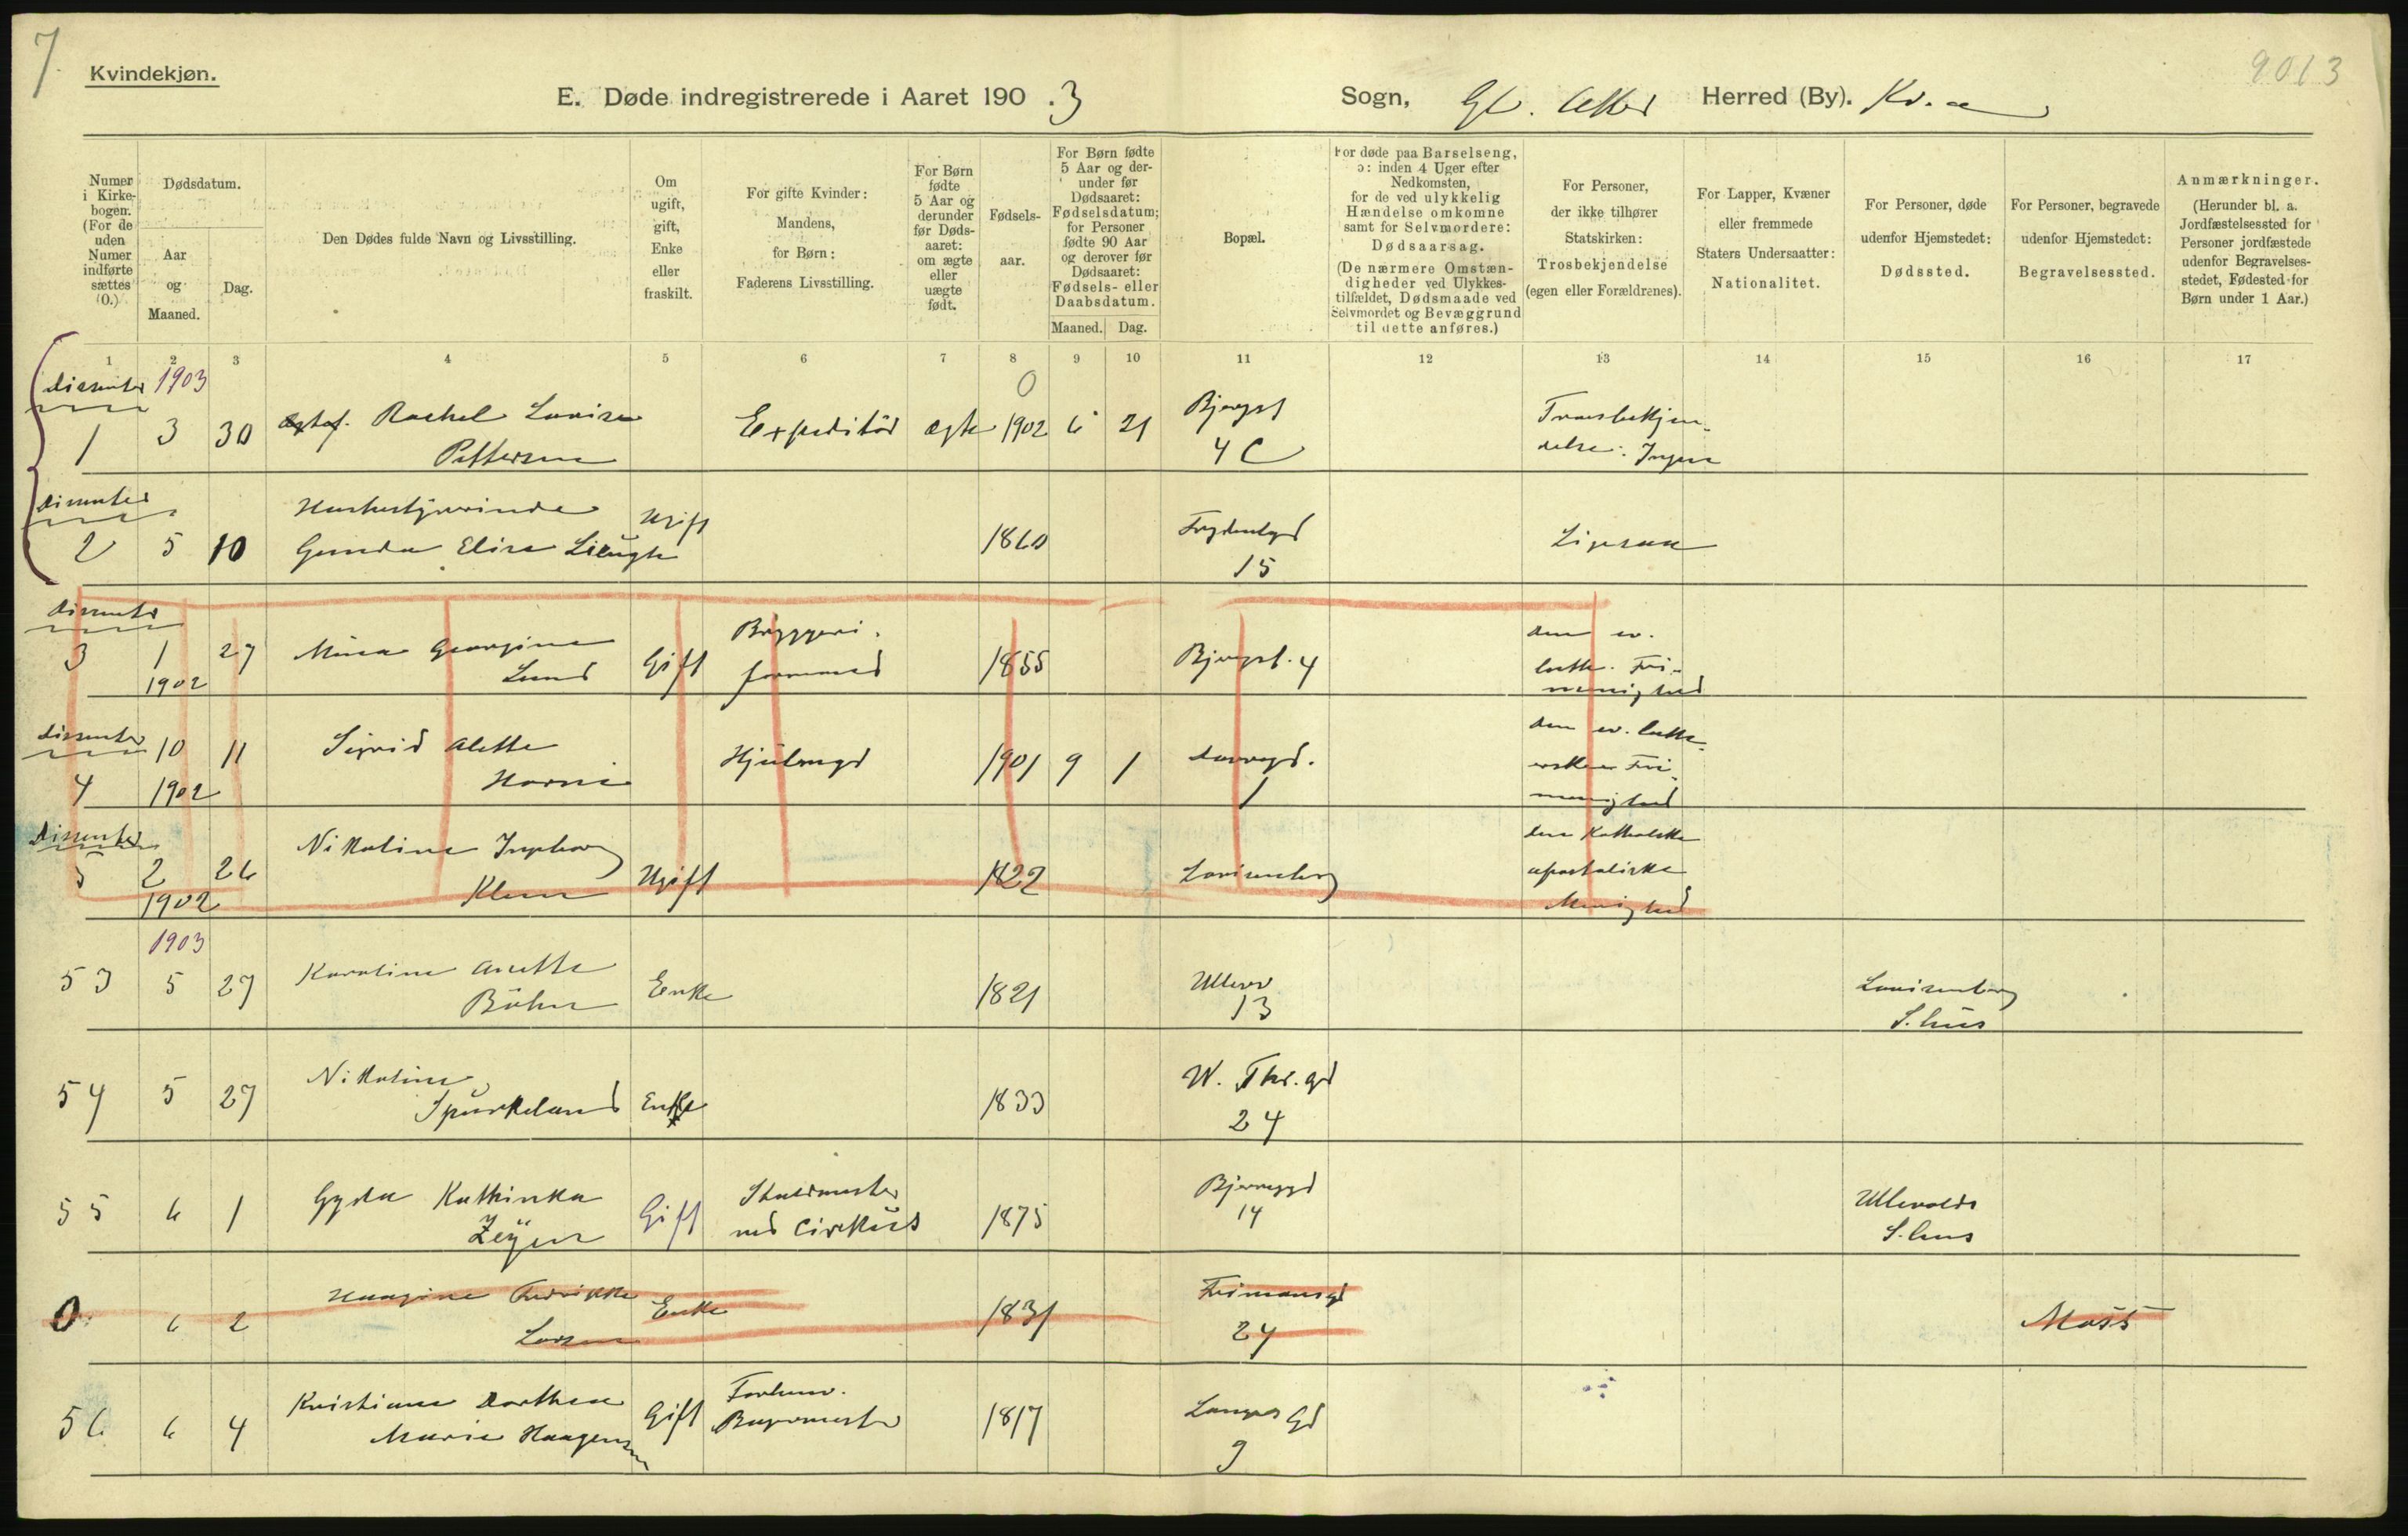 7.
Kvindekjøn.
9013
E. Døde indregistrerede i Aaret 190 . 3
Sogn, Gl. Aker Herred (By). Kr.a
Numer i Kirkebogen. (For de uden Numer indførte sættes 0.)
Dødsdatum.
Aar og Maaned.
Dag.
Den Dødes fulde Navn og Livsstilling.
Om ugift, gift, Enke eller fraskilt.
For gifte Kvinder: Mandens, for Børn: Faderens Livsstilling.
For Børn fødte 5 Aar og derunder før Dødsaaret: om ægte eller uægte født.
Fødselsaar.
For Børn fødte 5 Aar og derunder før Dødsaaret: Fødselsdatum; for Personer fødte 90 Aar og derover før Dødsaaret: Fødsels- eller Daabsdatum.
Maaned. Dag.
Bopæl.
For døde paa Barselseng, ɔ: inden 4 Uger efter Nedkomsten, for de ved ulykkelig Hændelse omkomne samt for Selvmordere: Dødsaarsag.
(De nærmere Omstændigheder ved Ulykkestilfældet, Dødsmaade ved Selvmordet og Bevæggrund til dette anføres.)
For Personer, der ikke tilhører Statskirken: Trosbekjendelse (egen eller Forældrenes).
For Lapper, Kvæner eller fremmede Staters Undersaatter: Nationalitet.
For Personer, døde udenfor Hjemstedet: Dødssted.
For Personer, begravede udenfor Hjemstedet: Begravelsessted.
Anmærkninger. (Herunder bl. a. Jordfæstelsessted for Personer jordfæstede udenfor Begravelsesstedet, Fødested for Børn under 1 Aar.)
1 2 3 4 5 6 7 8 9 10 11 12 13 14 15 16 17
dissenter 1903 0
1 3 30 Rachel Lovise Pettersen Expeditør ægte 1902 6 21 Bjergst 4 C Troesbekjendelse: Ingen
dissenter
2 5 10 Gunda Elise Ugift 1860 15
dissenter
3 1 1902 27 Mina Georgine Lund Gift Bryggeriformand 1855 Bjergst. 4 den ev. luth. Frimenighed
dissenter
4 10 1902 11 Sigrid Alette Hjulmgd 1901 9 1 1 den ev. lutherske Frimenighed
dissenter
5 2 1902 26 Nikoline Ingeborg Klem Ugift 1822 Lovisenberg den Katholske apostoliske Menighed
1903
53 5 27 Karoline Anette Bøhn Enke 1821 Ullevv 13 Lovisenberg S.hus
54 5 27 Nikoline Spurkeland Enke 1833 W. Thr. gd 24
55 6 1 Gyda Kathinka Zeÿer Gift Staldmester ved Cirkus 1875 Bjerregd 14 Ullevolds S.hus
0 6 2 Haagine Fredrikke Larsen Enke 1831 Frimansgd 24 Moss
56 6 4 Kristiane Dorthea Marie Haagensen Gift Forhenv. Bagermester 1817 Langes Gd 9